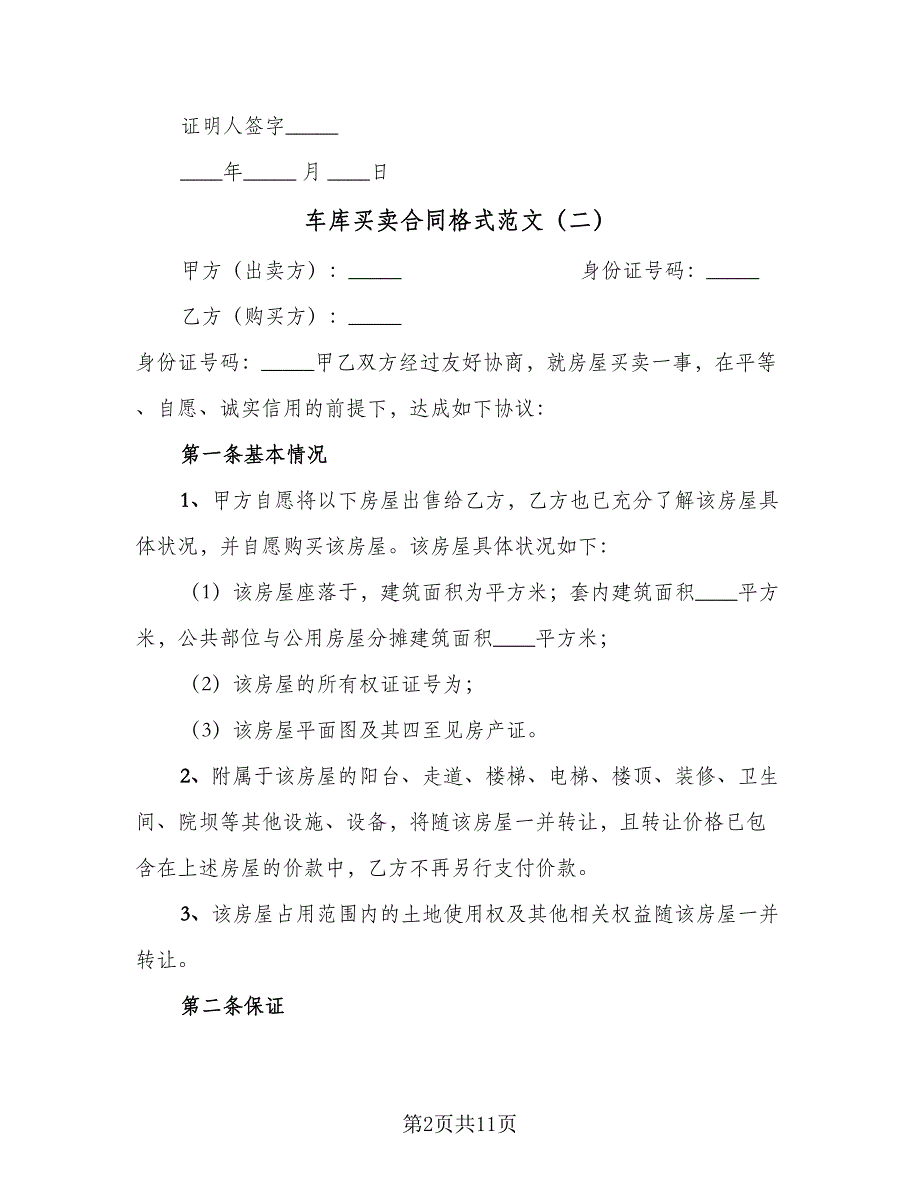 证明人签字_____
____年_____ 月 ____日
车库买卖合同格式范文（二）
甲方（出卖方）：_____ 身份证号码：_____
乙方（购买方）：_____
身份证号码：_____甲乙双方经过友好协商，就房屋买卖一事，在平等
、自愿、诚实信用的前提下，达成如下协议：
第一条基本情况
1、甲方自愿将以下房屋出售给乙方，乙方也已充分了解该房屋具
体状况，并自愿购买该房屋。该房屋具体状况如下：
（1）该房屋座落于，建筑面积为平方米；套内建筑面积____平方
米，公共部位与公用房屋分摊建筑面积____平方米；
（2）该房屋的所有权证证号为；
（3）该房屋平面图及其四至见房产证。
2、附属于该房屋的阳台、走道、楼梯、电梯、楼顶、装修、卫生
间、院坝等其他设施、设备，将随该房屋一并转让，且转让价格已包
含在上述房屋的价款中，乙方不再另行支付价款。
3、该房屋占用范围内的土地使用权及其他相关权益随该房屋一并
转让。
第二条保证
第2页共11页